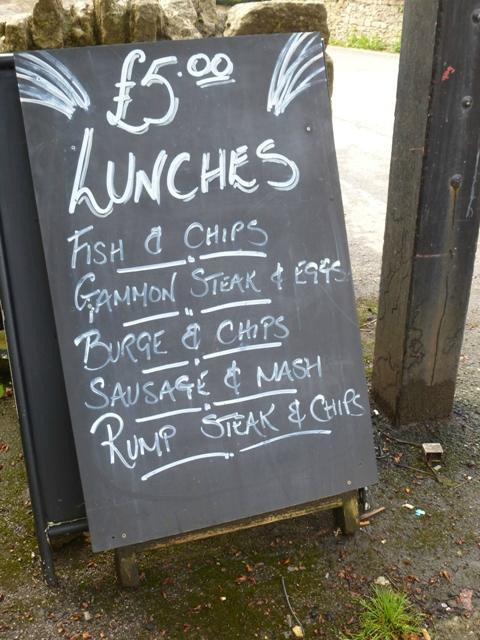 £5.00
LUNCHES
FISH & CHIPS
GAMMON STEAK & EGGS
BURGE & CHIPS
SAUSAGE & MASH
RUMP STEAK & CHIPS